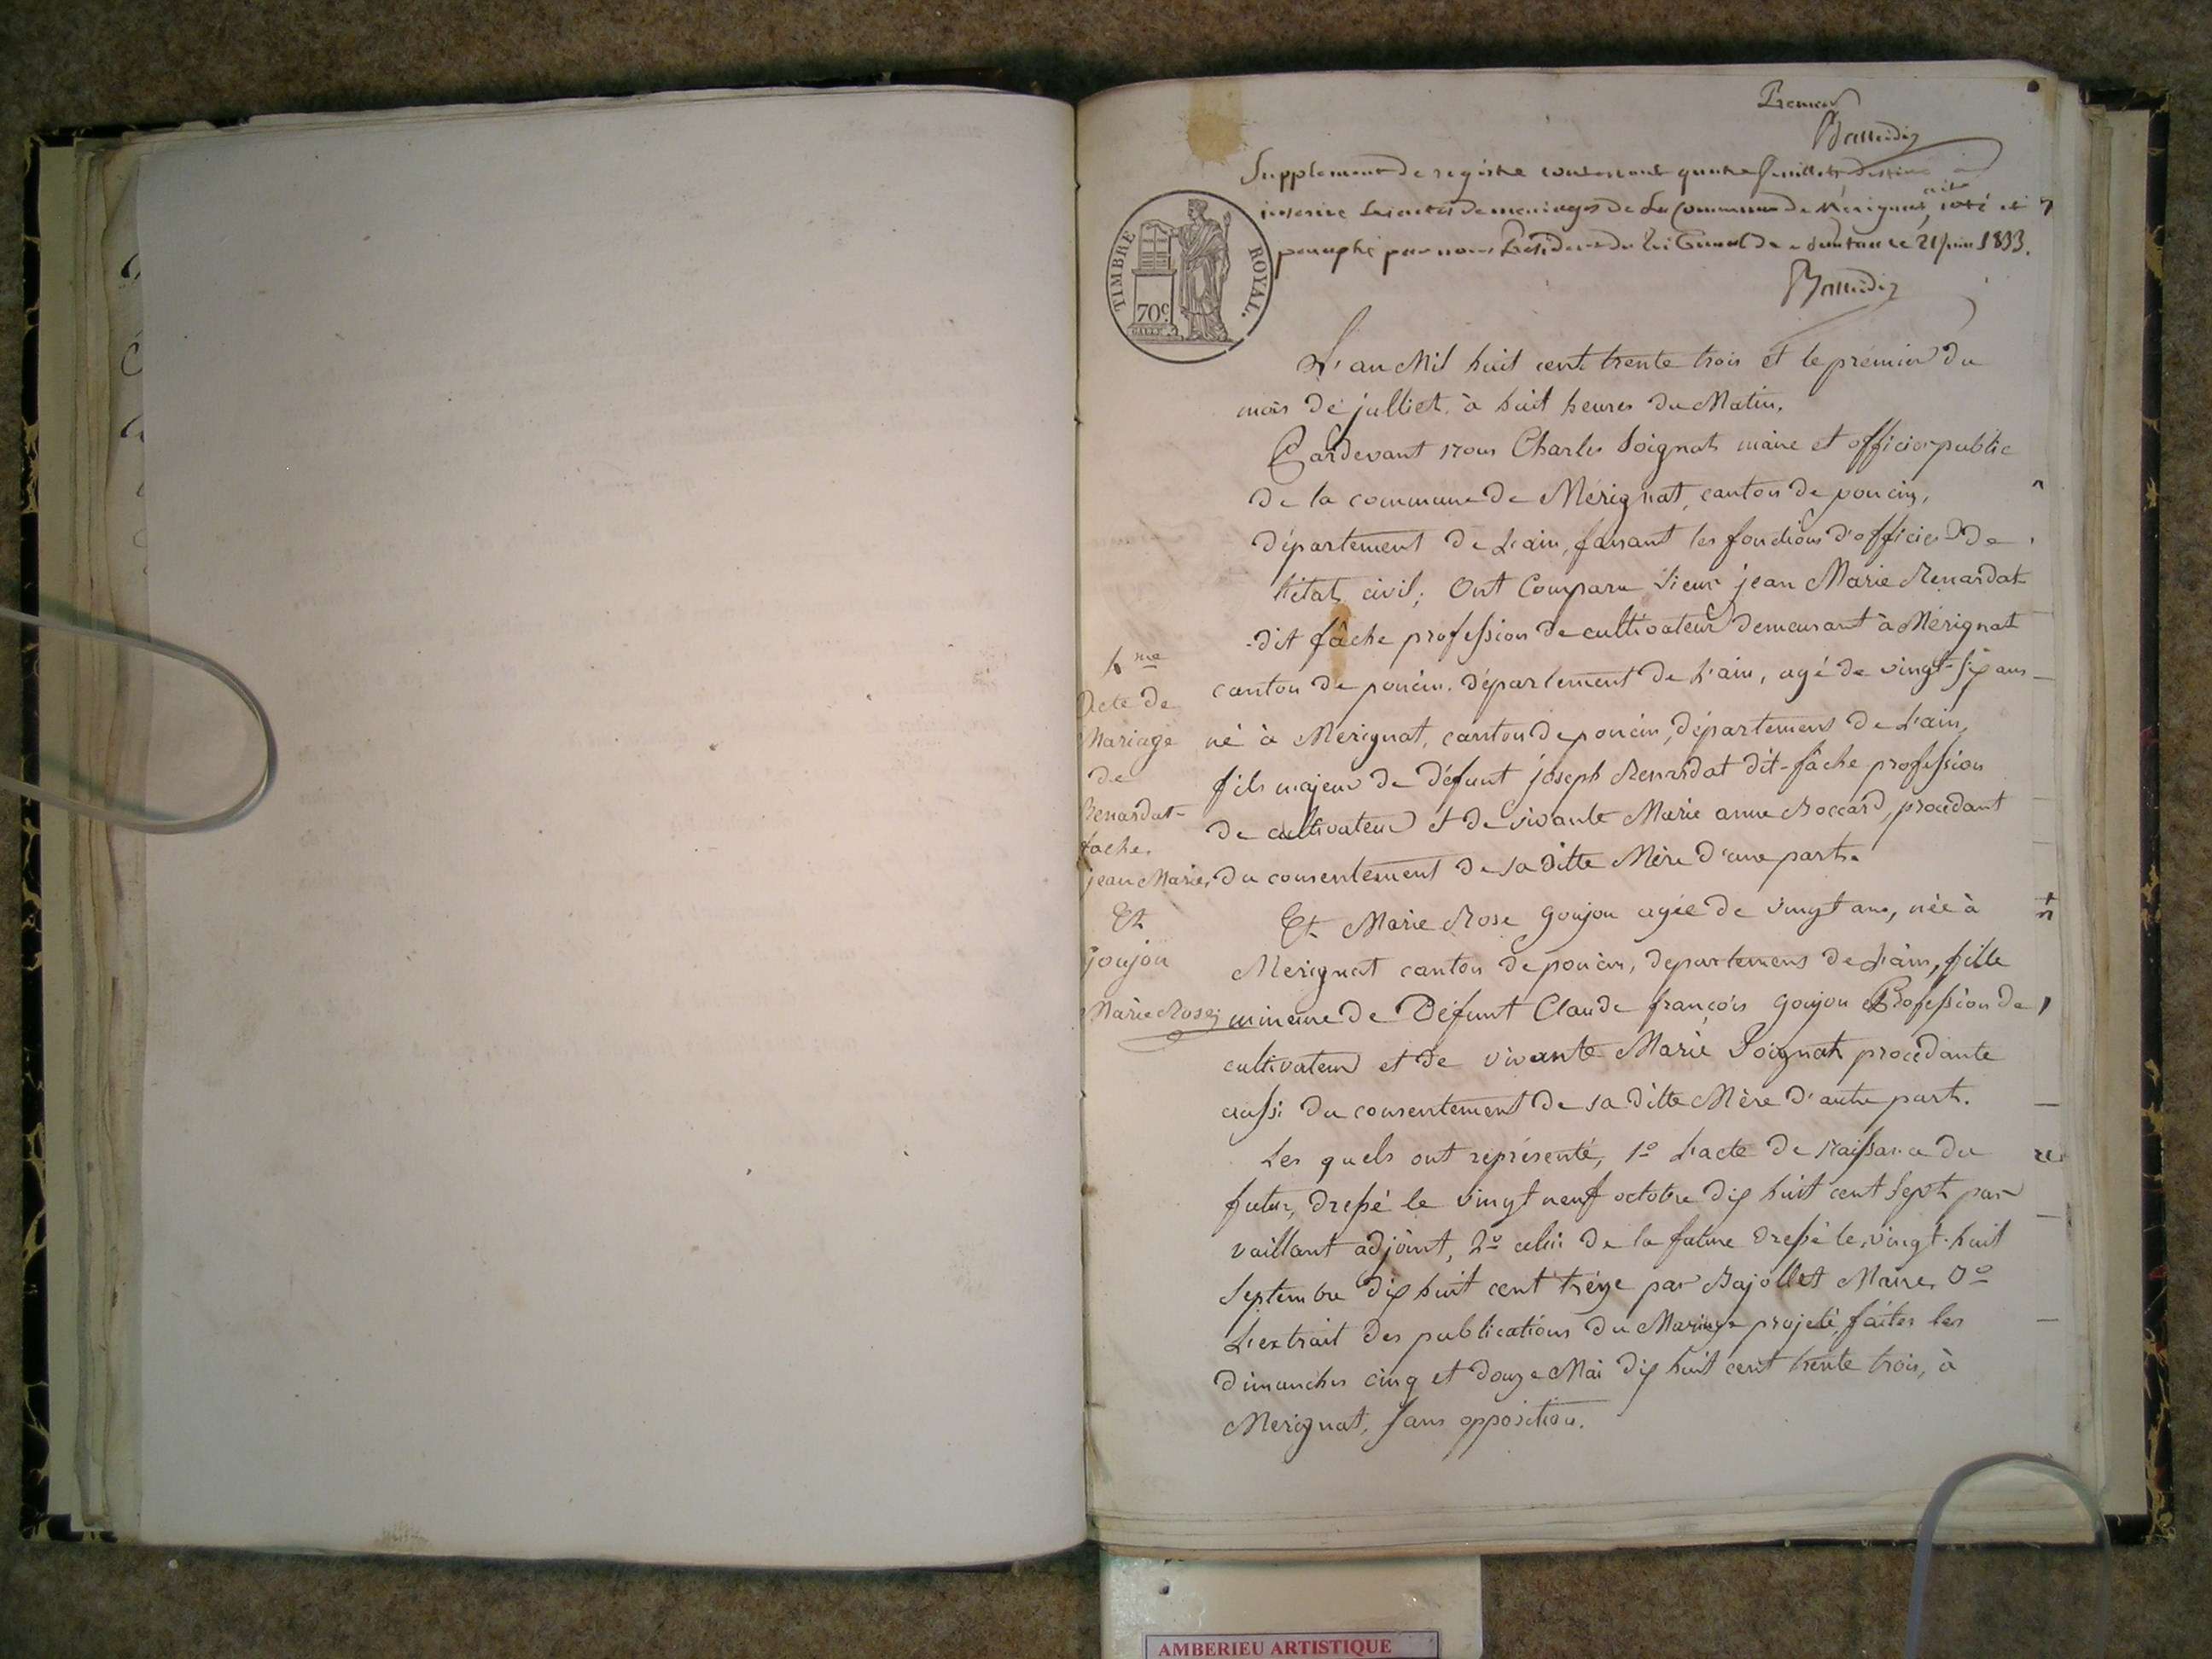 Premier
Supplement de registre contenant quatre feuillets destiné à
inscrire les actes de mariages de la Commune de Mérignat, coté et
paraphé par nous Président du Tribunal de Nantua le 21 juin 1833.
TIMBRE ROYAL.
70c
L'an Mil huit cent trente trois et le prémier du
mois de julliet, à huit heures du Matin,
Pardevant nous Charles Soignat maire et officier public
de la commune de Mérignat, canton de poncin,
département de L'ain, faisant les fonctions d'officier de
l'état civil; Ont Comparu Sieur jean Marie Renardat
-dit fâche profession de cultivateur demeurant à Mérignat
canton de poncin, département de L'ain, agé de vingt-six ans
né à Mérignat, canton de poncin, département de L'ain,
fils majeur de défunt joseph Renardat dit-fâche profession
de cultivateur et de vivante Marie anne Boccard, procédant
du consentement de sa ditte Mère d'une part.
4me
Acte de
Mariage
de
Renardat-
fache.
jean Marie,
Et
Goujon
Marie Rose;
Et Marie Rose Goujon agée de vingt ans, née à
Merignat canton de poncin, departement de L'ain, fille
mineure de Défunt Claude françois Goujon Profession de
cultivateur et de vivante Marie Soignat procédante
aussi du consentement de sa ditte Mère d'autre part.
Les quels ont représenté, 1o L'acte de Naissance du
futur, dressé le vingt neuf octobre dix huit cent sept par
vaillant adjoint, 2o celui de la future dressé le vingt-huit
Septembre dix huit cent trèize par Bajollet Maire. 3o
L'extrait des publications du Mariage projeté, faites les
dimanches cinq et douze Mai dix huit cent trente trois, à
Merignat, sans opposition.
AMBERIEU ARTISTIQUE